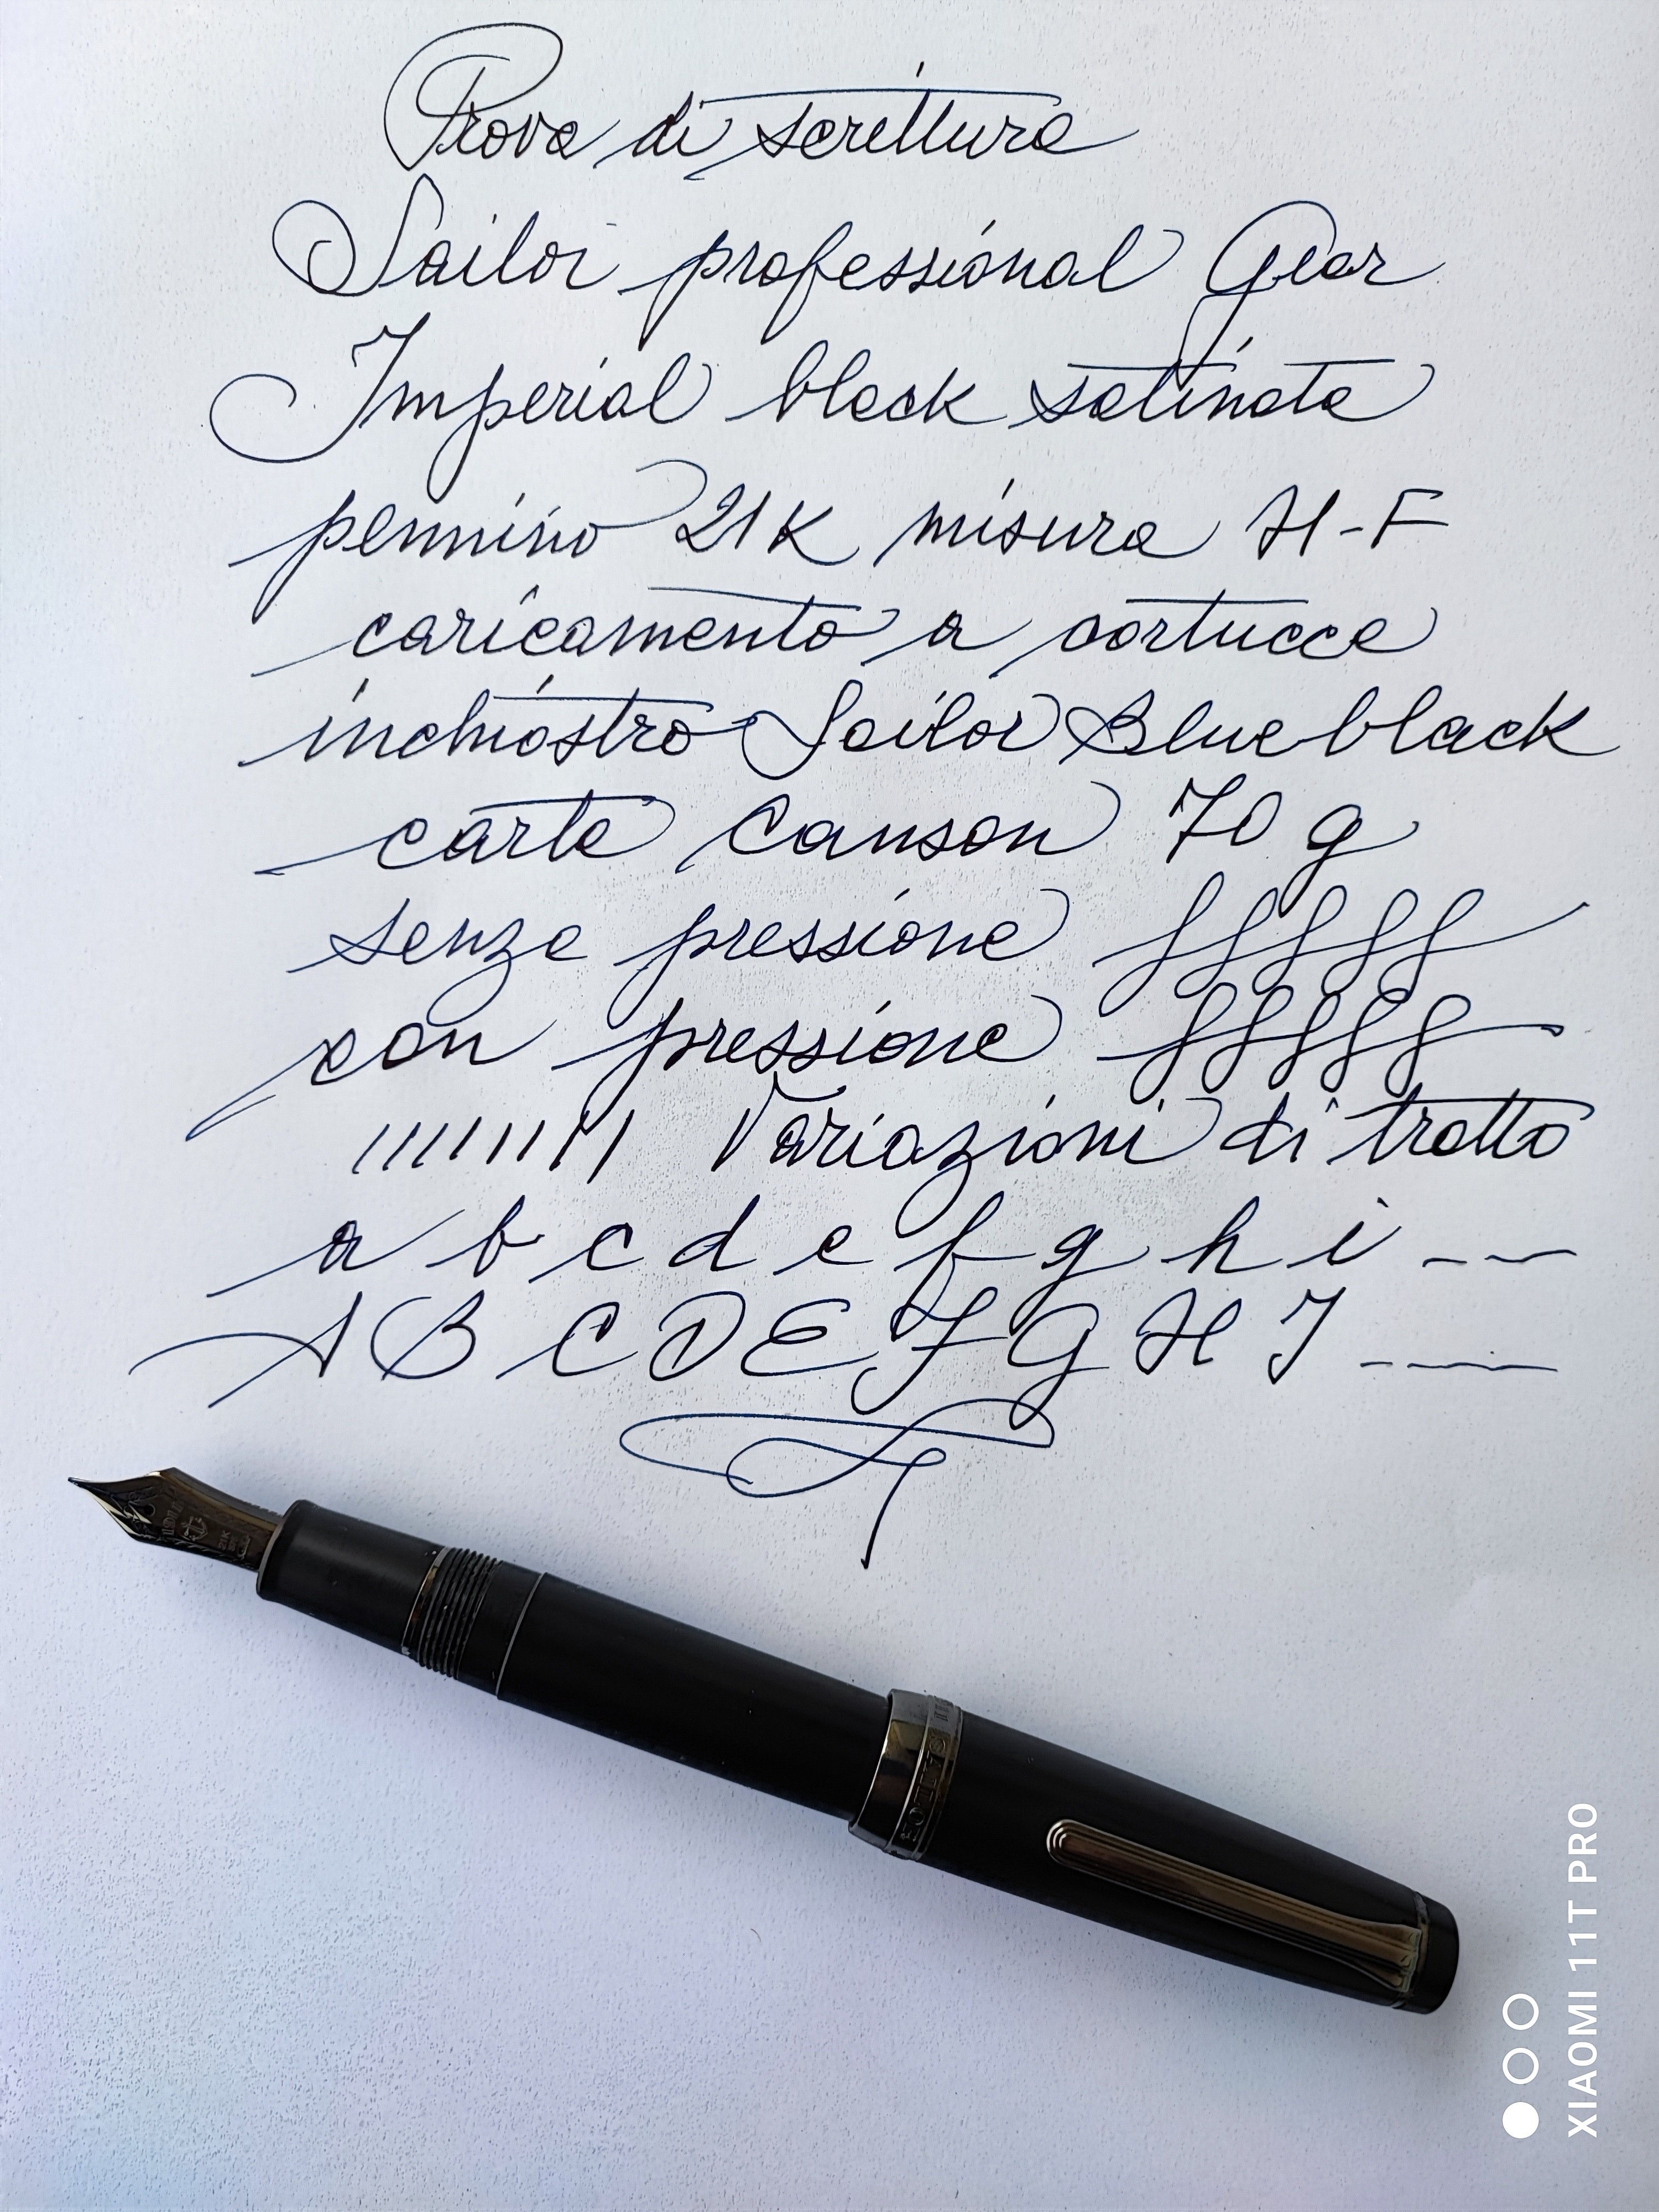 Prova di scrittura
Sailor professional Gear
Imperial black satinata
pennino 21K misura H-F
caricamento a cartucce
inchiostro Sailor Blue black
carta Canson 70 g
senza pressione
con pressione
Variazioni di tratto
a b c d e f g h i ---
A B C D E F G H I ----
21K
SAILOR
XIAOMI 11T PRO